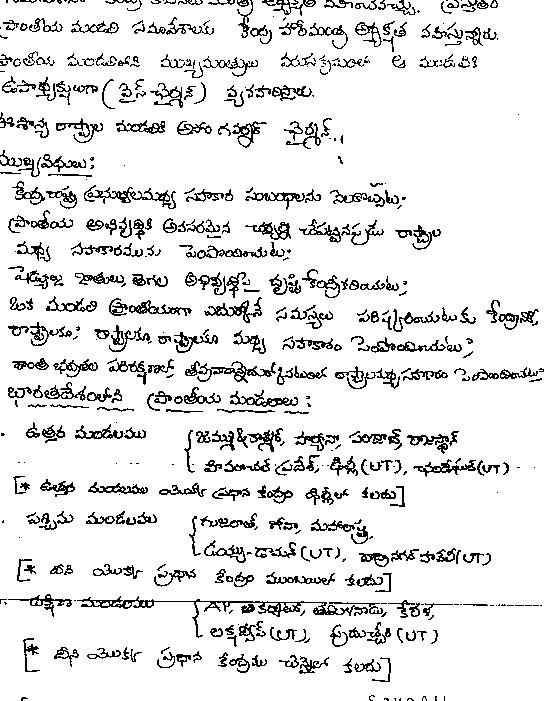 ప్రాంతీయ మండలి సమావేశాలకు కేంద్ర హోంమంత్రి అధ్యక్షత వహిస్తున్నారు.
ప్రాంతీయ మండలిలోని ముఖ్యమంత్రులు వరుసక్రమంలో ఆ మండలికి
ఉపాధ్యక్షులుగా (వైస్ ఛైర్మన్) వ్యవహరిస్తారు.
ఈశాన్య రాష్ట్రాల మండలికి అసోం గవర్నర్ ఛైర్మన్.
ముఖ్యవిధులు:
కేంద్ర, రాష్ట్ర ప్రభుత్వాలమధ్య సహకార సంబంధాలను నెలకొల్పుట;
ప్రాంతీయ అభివృద్ధికి అవసరమైన చర్యల్ని చేపట్టినపుడు రాష్ట్రాల
మధ్య సహకారమును పెంపొందించుట;
షెడ్యూల్డు జాతులు, తెగల అభివృద్ధిపై దృష్టి కేంద్రీకరించుట;
ఒక మండలి ప్రాంతీయంగా ఎదుర్కొనే సమస్యల పరిష్కరించుటకు కేంద్రానికి,
రాష్ట్రాలకూ; రాష్ట్రాలకూ, రాష్ట్రాలకూ మధ్య సహకారం పెంపొందించుట;
శాంతి భద్రతల పరిరక్షణలో, తీవ్రవాదాన్నెదుర్కొనుటలో రాష్ట్రాలమధ్య సహకారం పెంపొందించుట;
భారతదేశంలోని ప్రాంతీయ మండలాలు:
. ఉత్తర మండలము { జమ్ము&కాశ్మీర్, హర్యానా, పంజాబ్, రాజస్థాన్
హిమాచల్ ప్రదేశ్, ఢిల్లీ (UT), చండీఘడ్ (UT)
[* ఉత్తర మండలము యొక్క ప్రధాన కేంద్రం ఢిల్లీలో కలదు]
. పశ్చిమ మండలము { గుజరాత్, గోవా, మహారాష్ట్ర,
డయ్యు-డామన్ (UT), దాద్రానగర్ హవేలీ (UT)
[* దీని యొక్క ప్రధాన కేంద్రం ముంబయిలో కలదు]
. దక్షిణ మండలము { AP, కర్ణాటక, తమిళనాడు, కేరళ,
లక్షద్వీప్ (UT), పుదుచ్చేరి (UT)
[* దీని యొక్క ప్రధాన కేంద్రము చెన్నైలో కలదు]